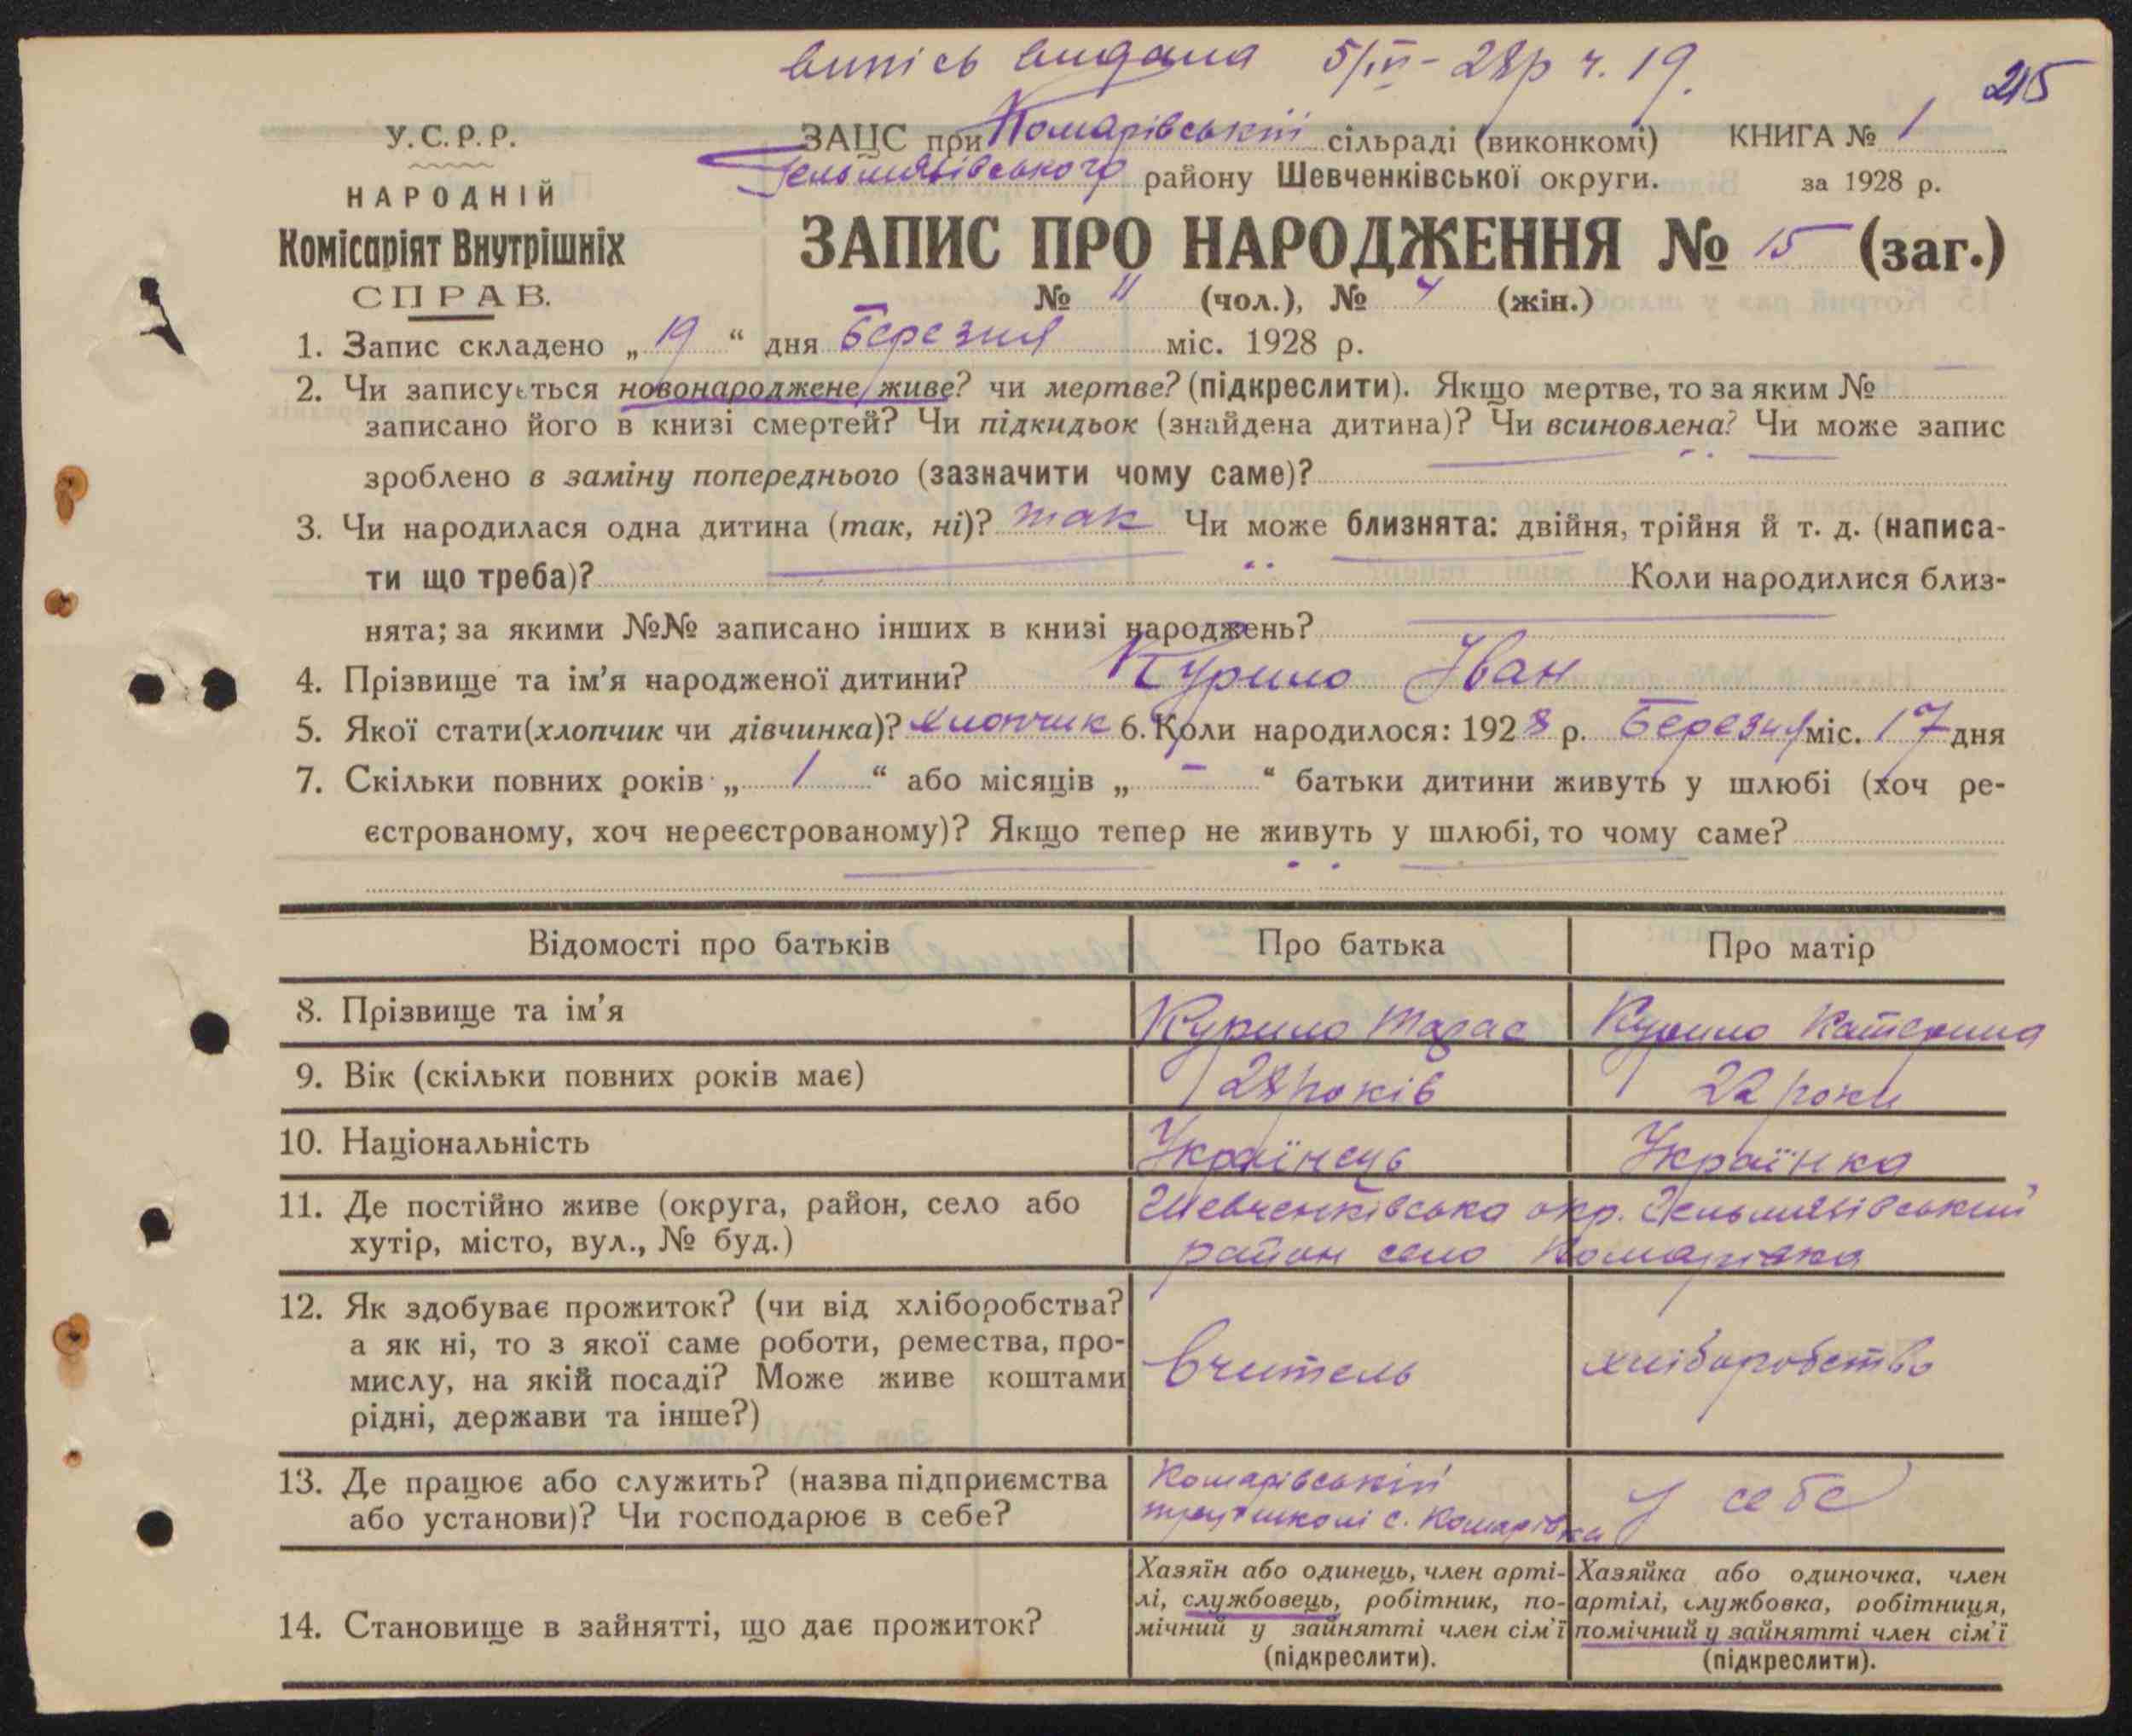 випісь видана 5/IV-28р ч. 19.
215
У.С.Р.Р.
НАРОДНІЙ
Комісаріят Внутрішніх
СПРАВ.
ЗАЦС при Комарівській сільраді (виконкомі) КНИГА № 1
Гельмязівського району Шевченківської округи. за 1928 р.
ЗАПИС ПРО НАРОДЖЕННЯ № 15 (заг.)
№ 11 (чол.), № 4 (жін.)
1. Запис складено „ 19 “ дня Березня міс. 1928 р.
2. Чи записується новонароджене живе? чи мертве? (підкреслити). Якщо мертве, то за яким №
записано його в книзі смертей? Чи підкидьок (знайдена дитина)? Чи всиновлена? Чи може запис
зроблено в заміну попереднього (зазначити чому саме)?
3. Чи народилася одна дитина (так, ні)? так Чи може близнята: двійня, трійня й т. д. (написа-
ти що треба)? Коли народилися близ-
нята; за якими №№ записано інших в книзі народжень?
4. Прізвище та ім'я народженої дитини? Курило Іван
5. Якої стати (хлопчик чи дівчинка)? хлопчик 6. Коли народилося: 1928 р. Березня міс. 17 дня
7. Скільки повних років „ 1 “ або місяців „ - “ батьки дитини живуть у шлюбі (хоч ре-
єстрованому, хоч нереєстрованому)? Якщо тепер не живуть у шлюбі, то чому саме?
Відомості про батьків Про батька Про матір
8. Прізвище та ім'я Курило Тарас Курило Катерина
9. Вік (скільки повних років має) 28 років 22 роки
10. Національність Українець Українка
11. Де постійно живе (округа, район, село або Шевченківська окр. Гельмязівський
хутір, місто, вул., № буд.) район село Комарівка
12. Як здобуває прожиток? (чи від хліборобства?
а як ні, то з якої саме роботи, ремества, про-
мислу, на якій посаді? Може живе коштами Вчитель хліборобство
рідні, держави та інше?)
13. Де працює або служить? (назва підприємства Комарівській
або установи)? Чи господарює в себе? трутшколі с. Комарівка У себе
14. Становище в зайнятті, що дає прожиток?
Хазяїн або одинець, член арті-
лі, службовець, робітник, по-
мічний у зайнятті член сім'ї
(підкреслити).
Хазяйка або одиночка, член
артілі, службовка, робітниця,
помічний у зайнятті член сім'ї
(підкреслити).